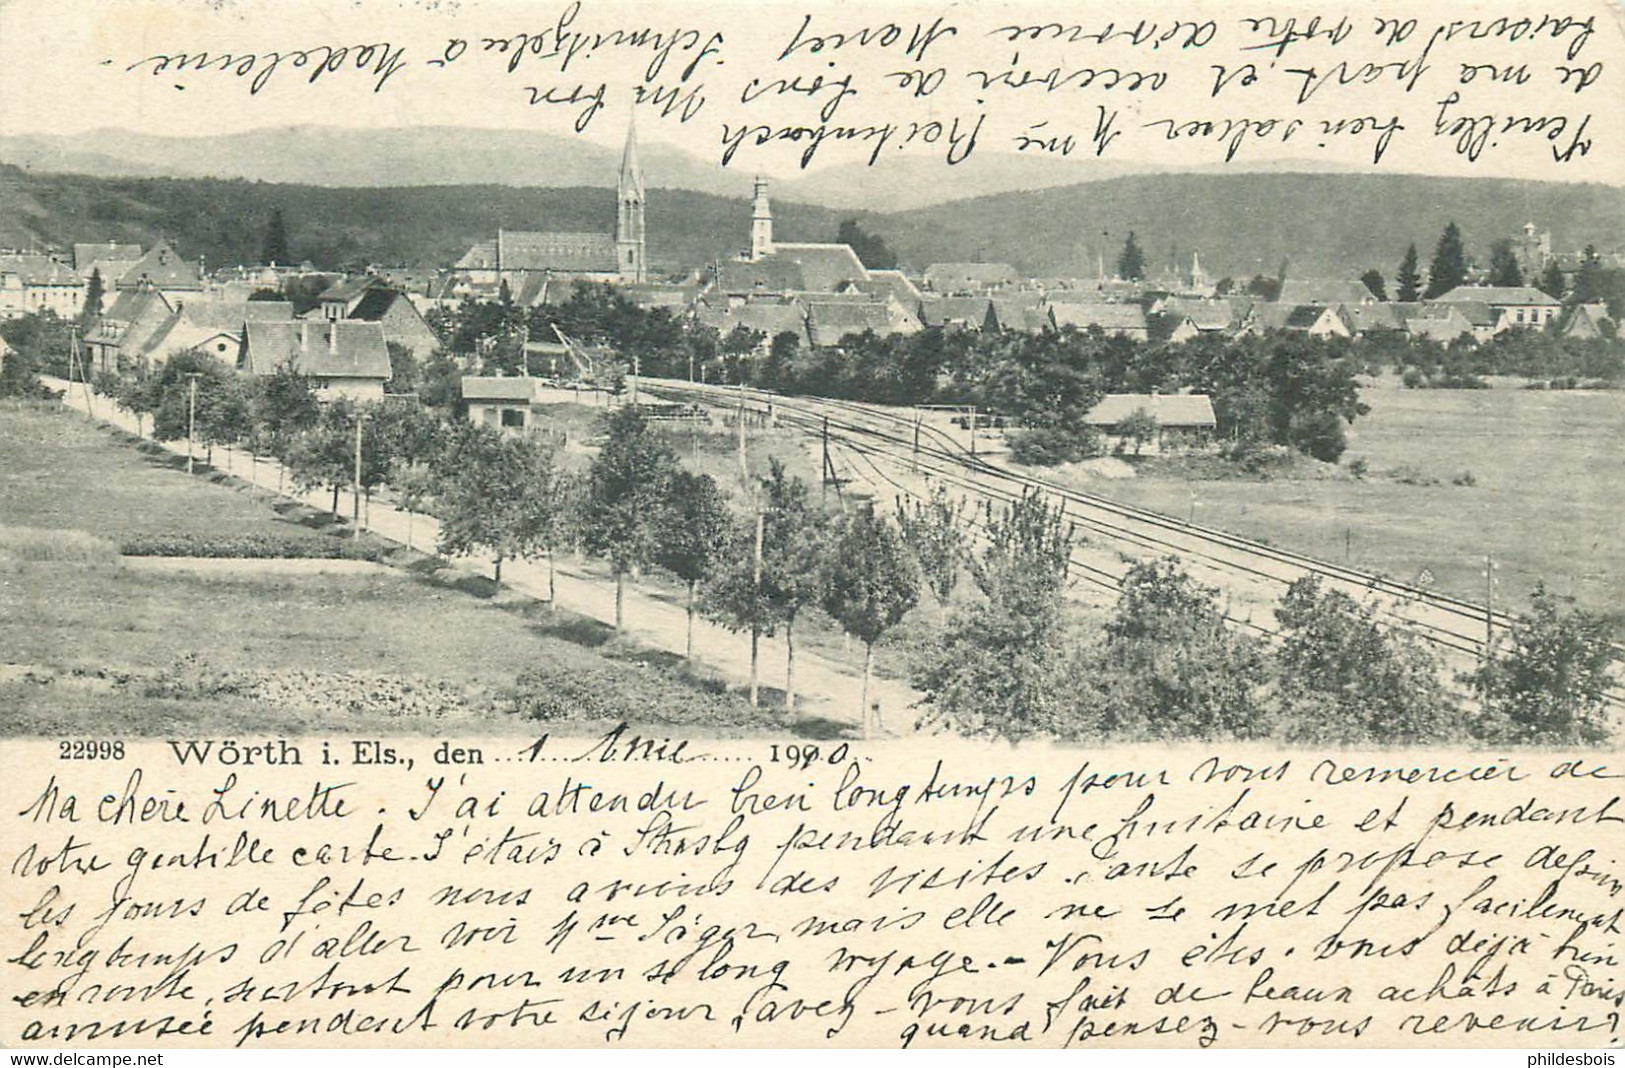 22998 Wörth i. Els., den 1 1900
Ma chère Linette. J'ai attendu bien longtemps pour vous remercier de
votre gentille carte. J'étais à Strasbg pendant une huitaine et pendant
les jours de fêtes nous avions des visites. Tante se propose depuis
longtemps d'aller voir Mme Jäger, mais elle ne se met pas facilement
en route, surtout pour un si long voyage. - Vous êtes-vous déjà bien
amusée pendant votre séjour, avez-vous fait de beaux achâts à Paris
quand pensez-vous revenir?
Veuillez bien saluer Mme
de ma part et recevoir de bons
baisers de votre dévouée Marie
Un bon Schmitzele à Madeleine.
phildesbois